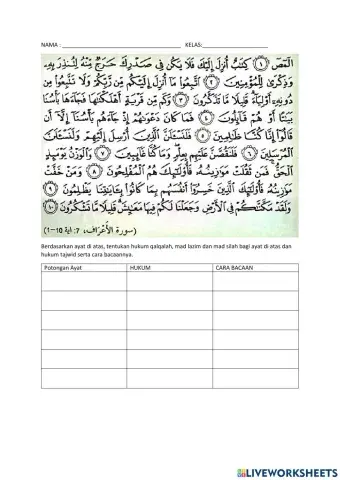 NAMA : ________________________ KELAS: ________________
الٓمٓصٓ ﴿١﴾ كِتَٰبٌ أُنزِلَ إِلَيْكَ فَلَا يَكُن فِى صَدْرِكَ حَرَجٌ مِّنْهُ لِتُنذِرَ بِهِۦ
وَذِكْرَىٰ لِلْمُؤْمِنِينَ ﴿٢﴾ ٱتَّبِعُوا۟ مَآ أُنزِلَ إِلَيْكُم مِّن رَّبِّكُمْ وَلَا تَتَّبِعُوا۟ مِن
دُونِهِۦٓ أَوْلِيَآءَ ۗ قَلِيلًا مَّا تَذَكَّرُونَ ﴿٣﴾ وَكَم مِّن قَرْيَةٍ أَهْلَكْنَٰهَا فَجَآءَهَا بَأْسُنَا
بَيَٰتًا أَوْ هُمْ قَآئِلُونَ ﴿٤﴾ فَمَا كَانَ دَعْوَىٰهُمْ إِذْ جَآءَهُم بَأْسُنَآ إِلَّآ أَن
قَالُوٓا۟ إِنَّا كُنَّا ظَٰلِمِينَ ﴿٥﴾ فَلَنَسْـَٔلَنَّ ٱلَّذِينَ أُرْسِلَ إِلَيْهِمْ وَلَنَسْـَٔلَنَّ
ٱلْمُرْسَلِينَ ﴿٦﴾ فَلَنَقُصَّنَّ عَلَيْهِم بِعِلْمٍ ۖ وَمَا كُنَّا غَآئِبِينَ ﴿٧﴾ وَٱلْوَزْنُ يَوْمَئِذٍ
ٱلْحَقُّ ۚ فَمَن ثَقُلَتْ مَوَٰزِينُهُۥ فَأُو۟لَٰٓئِكَ هُمُ ٱلْمُفْلِحُونَ ﴿٨﴾ وَمَنْ خَفَّتْ
مَوَٰزِينُهُۥ فَأُو۟لَٰٓئِكَ ٱلَّذِينَ خَسِرُوٓا۟ أَنفُسَهُم بِمَا كَانُوا۟ بِـَٔايَٰتِنَا يَظْلِمُونَ ﴿٩﴾
وَلَقَدْ مَكَّنَّٰكُمْ فِى ٱلْأَرْضِ وَجَعَلْنَا لَكُمْ فِيهَا مَعَٰيِشَ ۗ قَلِيلًا مَّا تَشْكُرُونَ ﴿١٠﴾
(سورة الأعراف، 7: اية 10–1)
Berdasarkan ayat di atas, tentukan hukum qalqalah, mad lazim dan mad silah bagi ayat di atas dan
hukum tajwid serta cara bacaannya.
Potongan Ayat HUKUM CARA BACAAN
LIVEWORKSHEETS